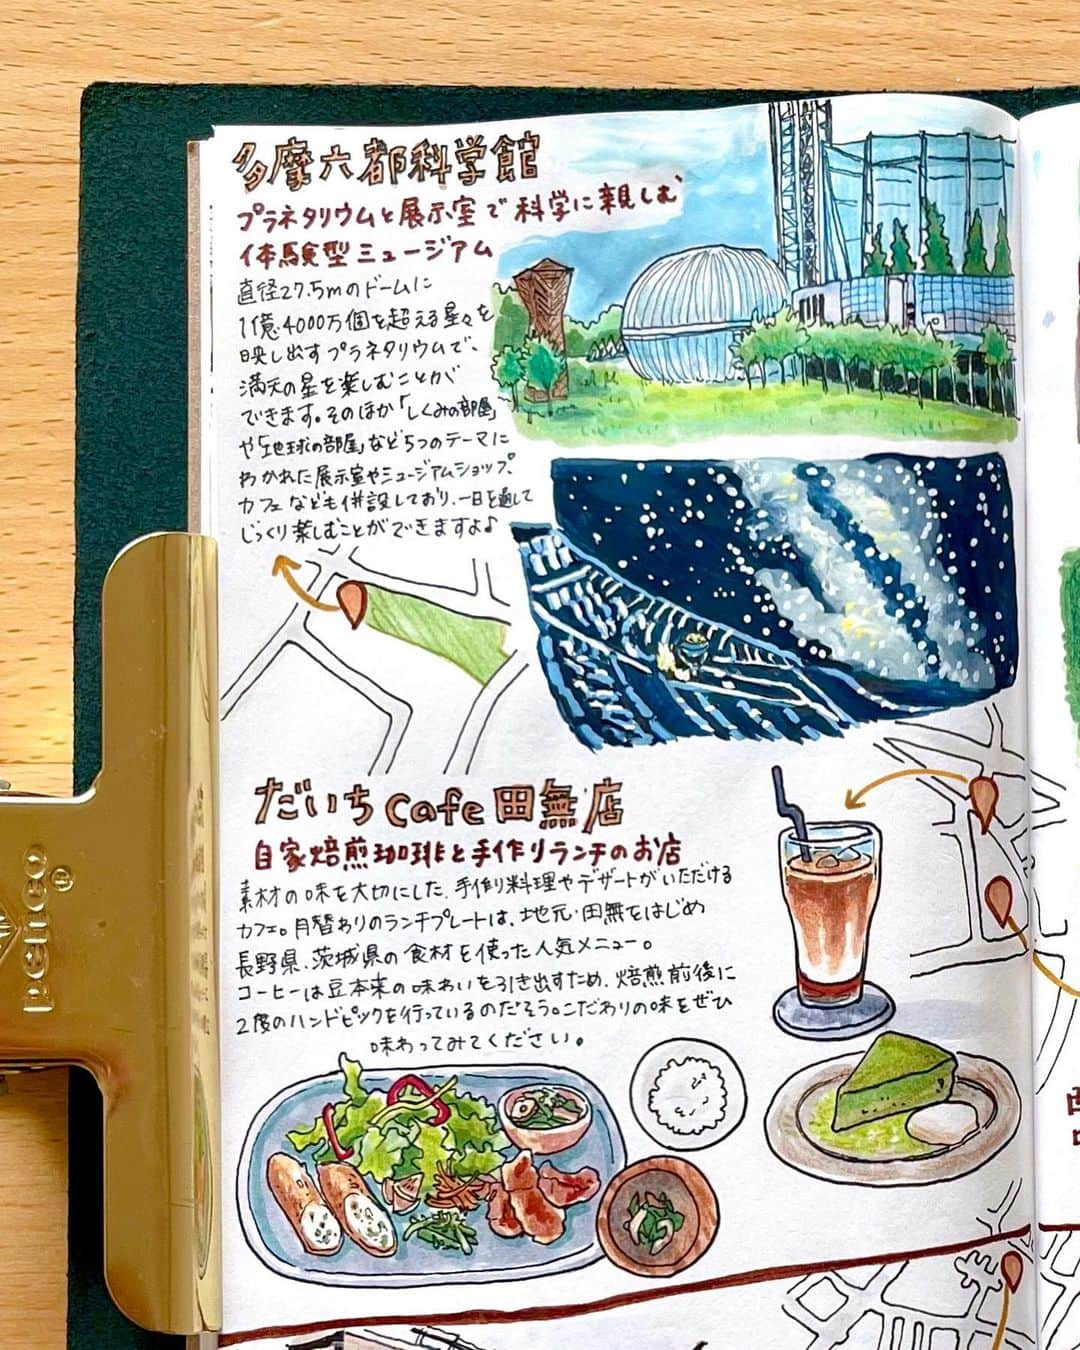 多摩六都科学館
プラネタリウムと展示室で科学に親しむ
体験型ミュージアム
直径27.5mのドームに
1億4000万個を超える星々を
映し出すプラネタリウムで、
満天の星を楽しむことが
できます。そのほか「しくみの部屋」
や「地球の部屋」など5つのテーマに
わかれた展示室やミュージアムショップ、
カフェなども併設しており、一日を通して
じっくり楽しむことができますよ♪
だいちCafe田無店
自家焙煎珈琲と手作りランチのお店
素材の味を大切にした、手作り料理やデザートがいただける
カフェ。月替わりのランチプレートは、地元・田無をはじめ
長野県、茨城県の食材を使った人気メニュー。
コーヒーは豆本来の味わいを引き出すため、焙煎前後に
2度のハンドピックを行っているのだそう。こだわりの味をぜひ
味わってみてください。
penco®